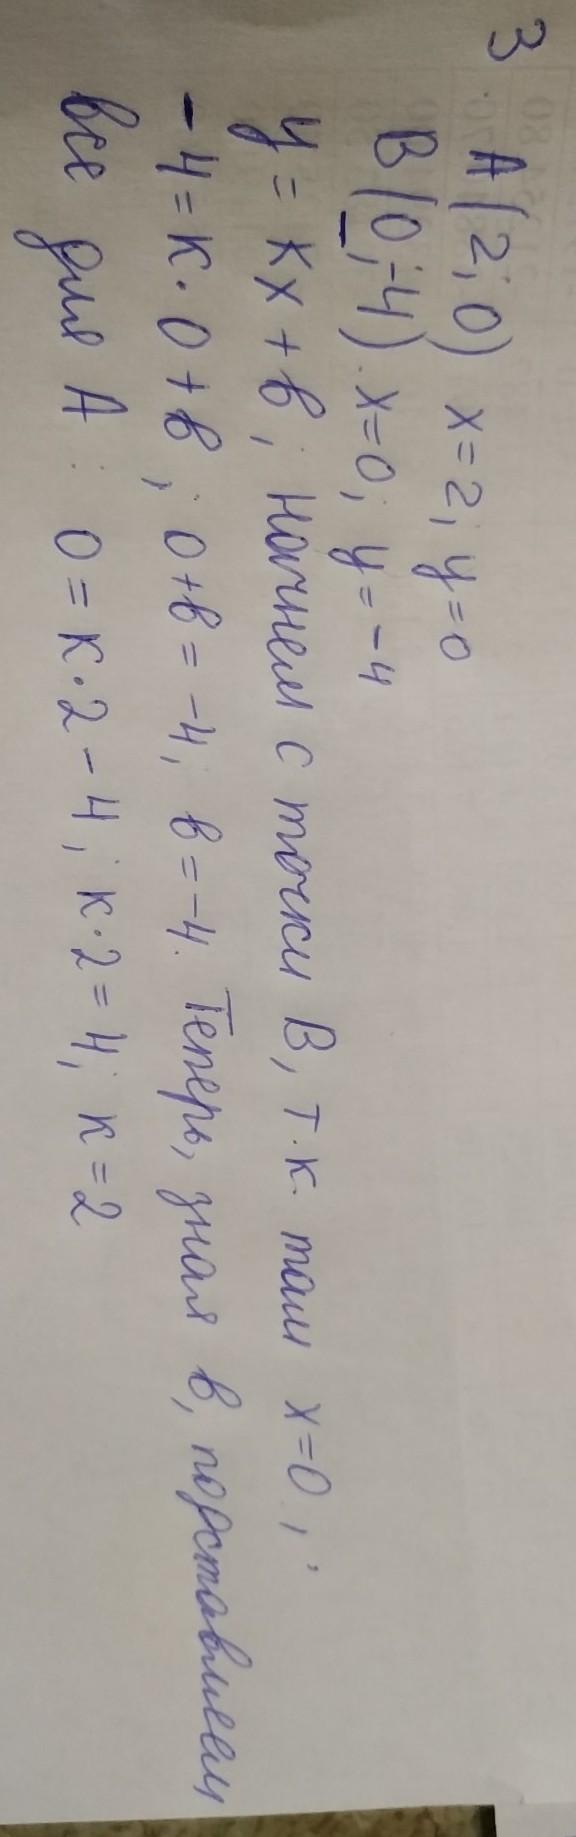 3. А (2; 0) х=2; у=0
В (0; -4). х=0; у=-4
у = кх + в; начнем с точки В, т.к. там х=0;
-4 = к · 0 + в; 0+в = -4; в = -4. Теперь, зная в, подставляем
все для А: 0 = к·2 - 4; к·2 = 4; к = 2